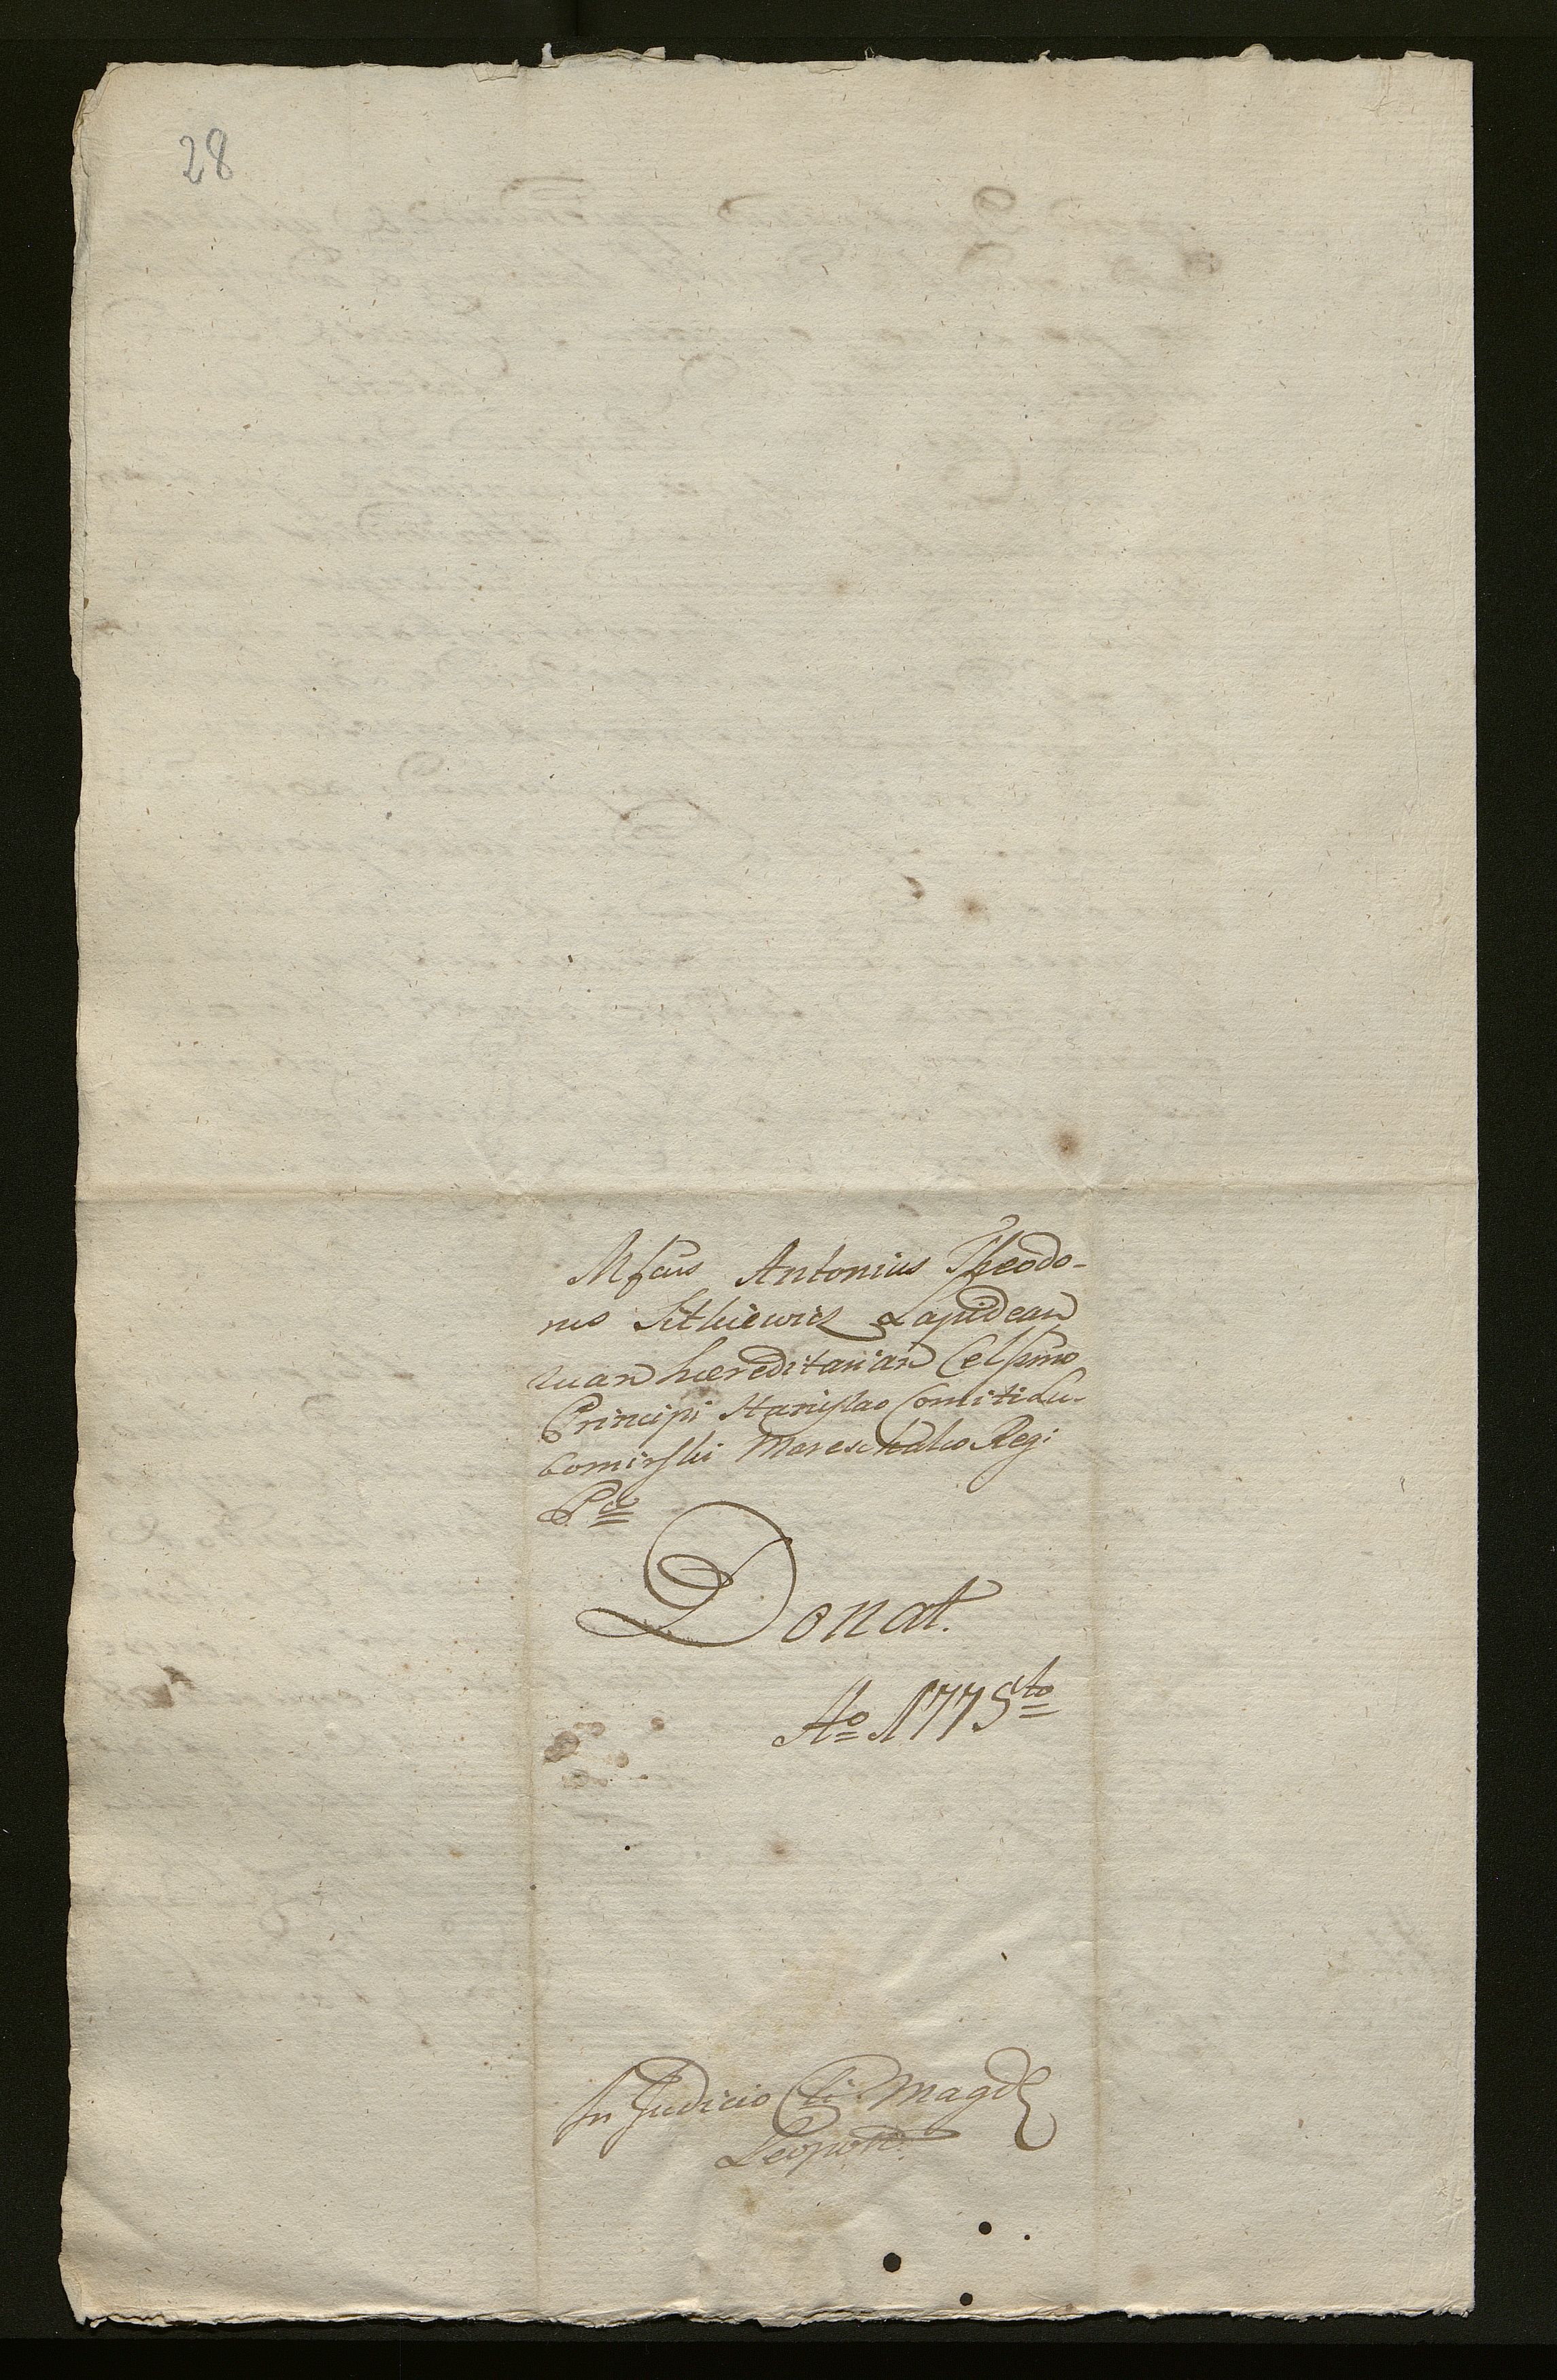 28
Mfcus Antonius Theodo-
rus Sithiewicz Lapidean
suan hæreditarian Celssmo
Principi Stanislao Comiti Lu-
bomirski Mareschalco Regi
Donat.
Ao 1775to
In Judicio Cli Magd
Leopold.